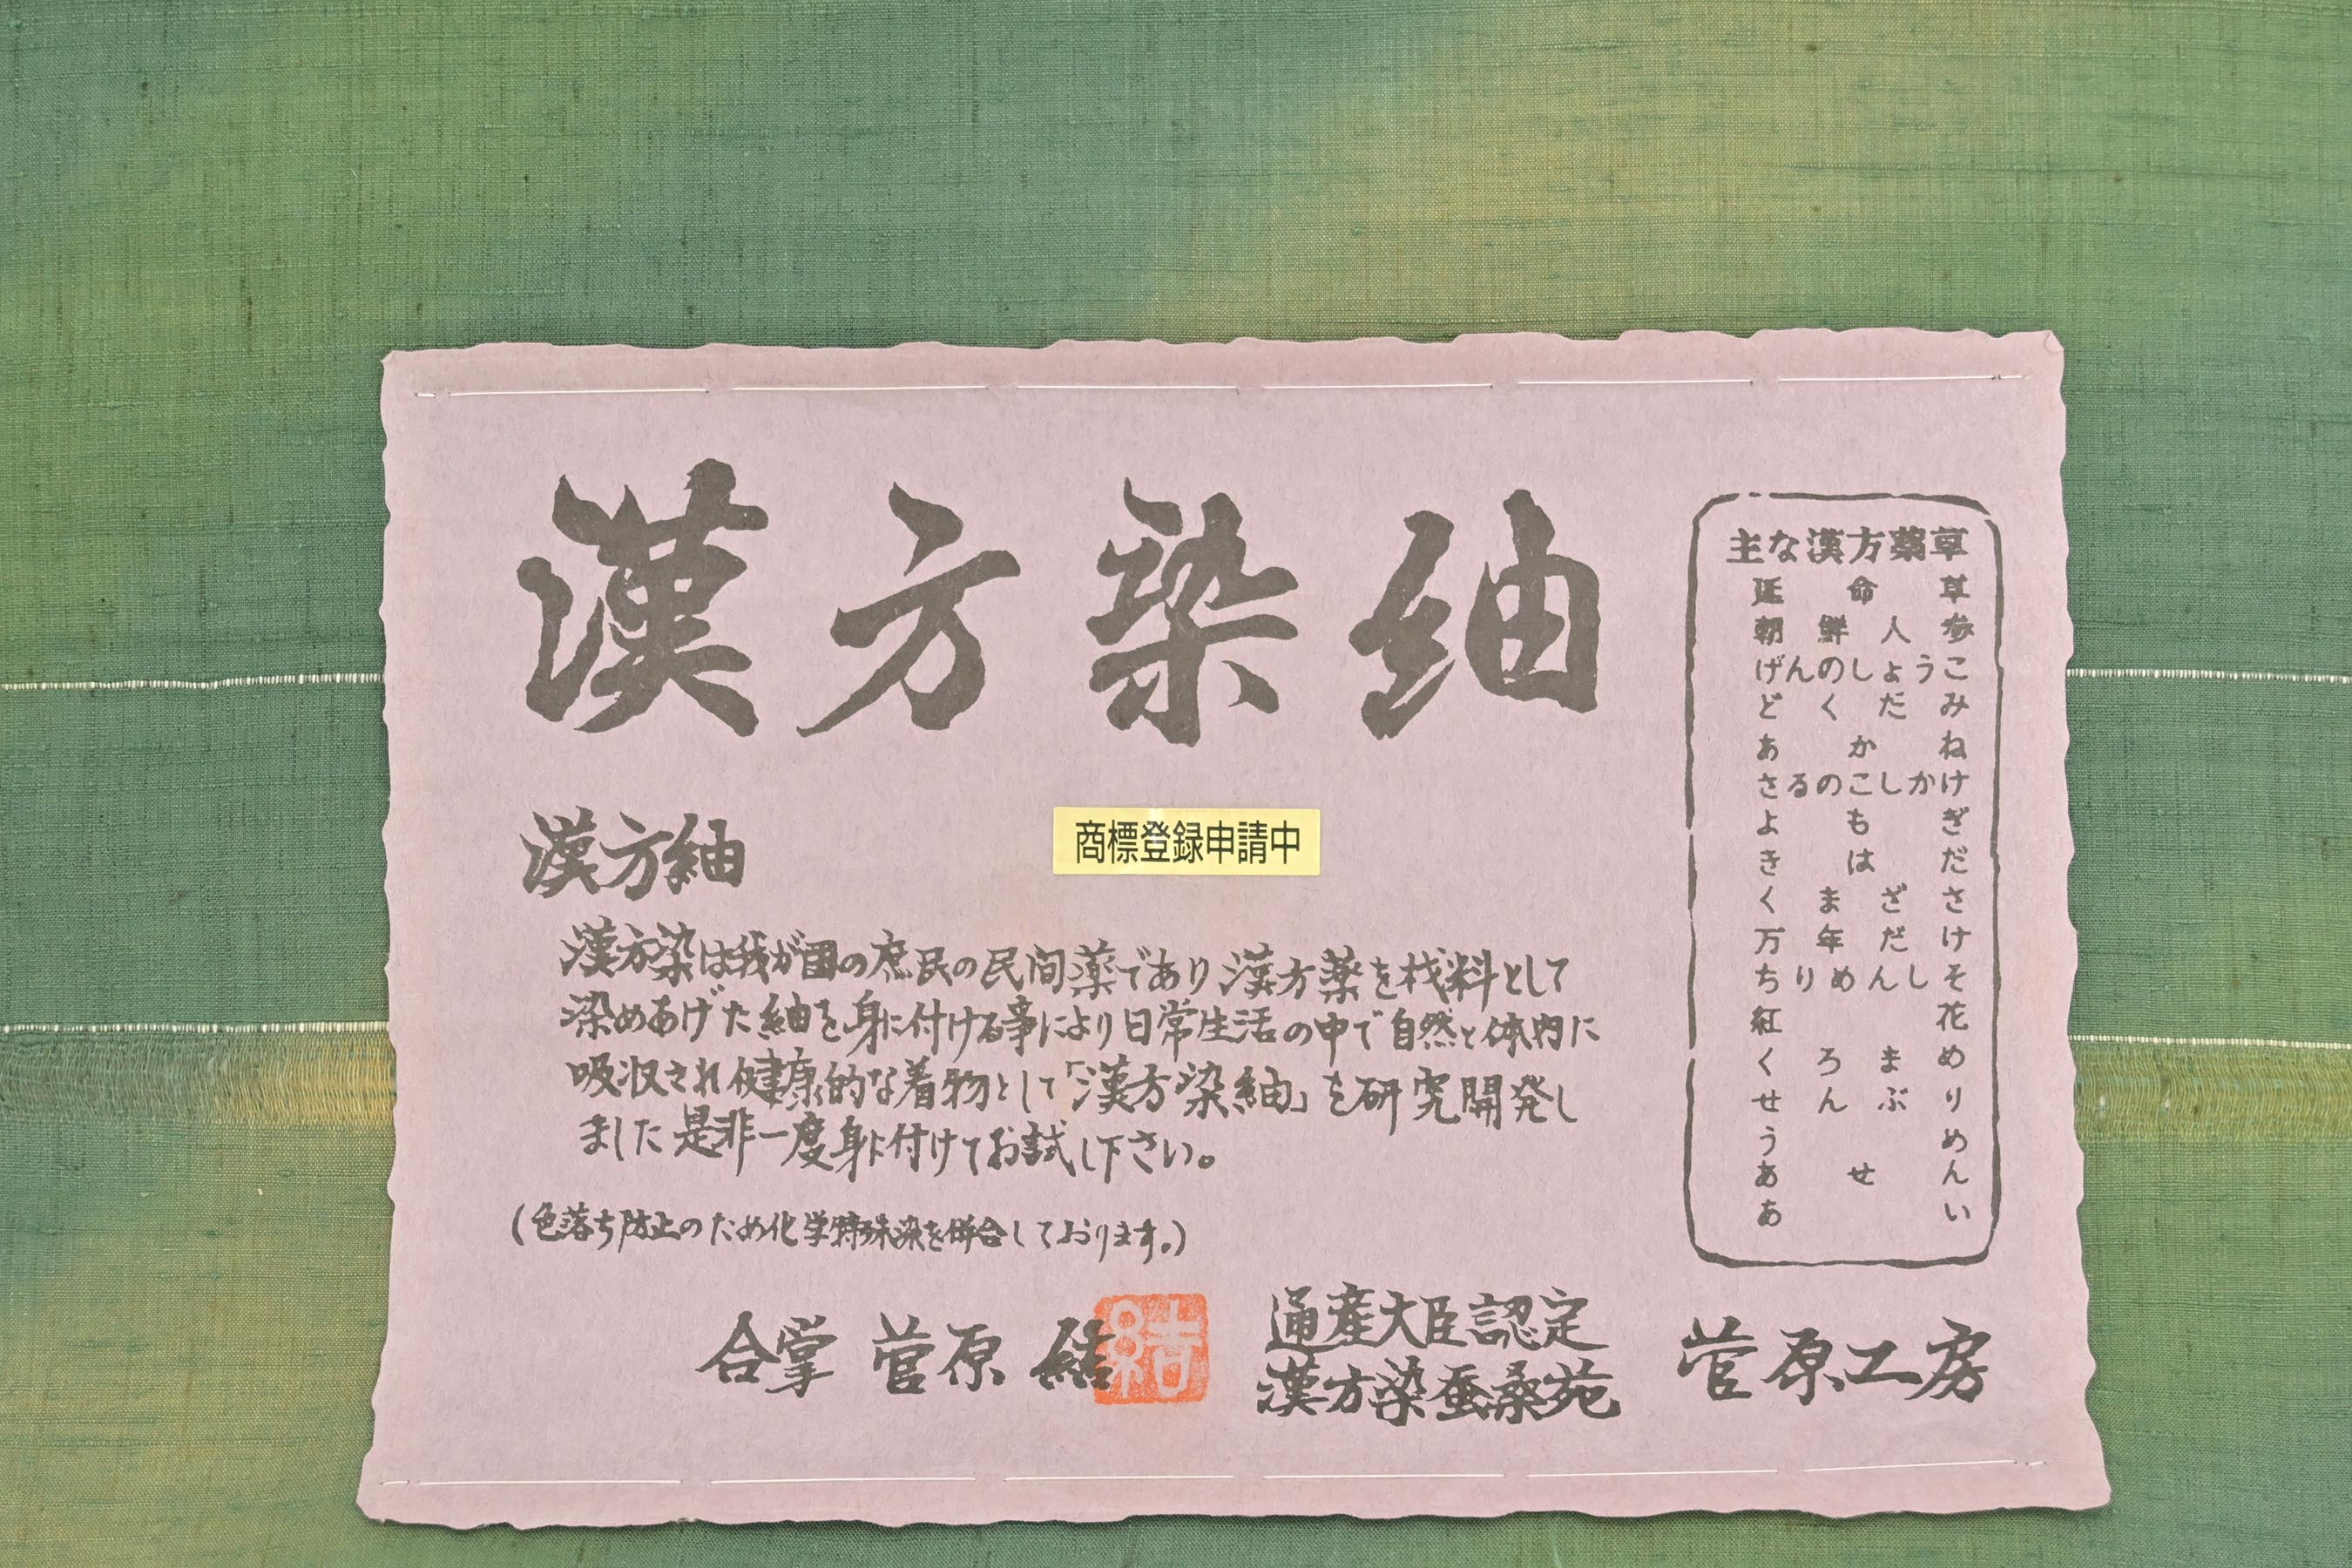 漢方染紬
漢方紬
商標登録申請中
漢方染は我が国の庶民の民間薬であり漢方薬を材料として
染めあげた紬を身に付ける事により日常生活の中で自然と体内に
吸収され健康的な着物として「漢方染紬」を研究開発し
ました是非一度身に付けてお試し下さい。
(色落ち防止のため化学特殊染を併合しております。)
合掌 菅原 結
結
通産大臣認定
漢方染蚕桑苑
菅原工房
主な漢方薬草
延命草
朝鮮人参
げんのしょうこ
どくだみ
あかね
さるのこしかけ
よもぎ
きはだ
くまざさ
万年だけ
ちりめんじそ
紅花
くろまめ
せんぶり
うめ
あせん
あい